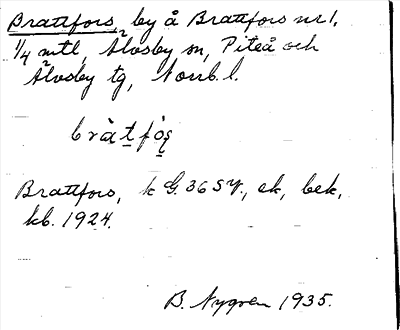 Brattfors, by å Brattfors nr 1,
1/4 mtl, Älvsby sn, Piteå och
Älvsby tg, Norrb. l.
bràt̲fò̲s̲
Brattfors, k G. 36 SV., ek, bek,
kb. 1924.
B. Nygren 1935.